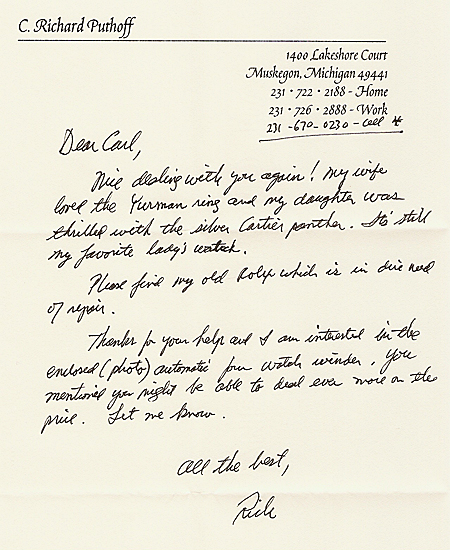 C. Richard Puthoff
1400 Lakeshore Court
Muskegon, Michigan 49441
231 · 722 · 2188 - Home
231 · 726 · 2888 - Work
231 - 670 - 0230 - cell *
Dear Carl,
Nice dealing with you again! My wife
loved the Yurman ring and my daughter was
thrilled with the silver Cartier panther. It's still
my favorite lady's watch.
Please find my old Rolex which is in dire need
of repair.
Thanks for your help and I am interested in the
enclosed (photo) automatic four watch winder. You
mentioned you might be able to deal even more on the
price. Let me know.
All the best,
Rick